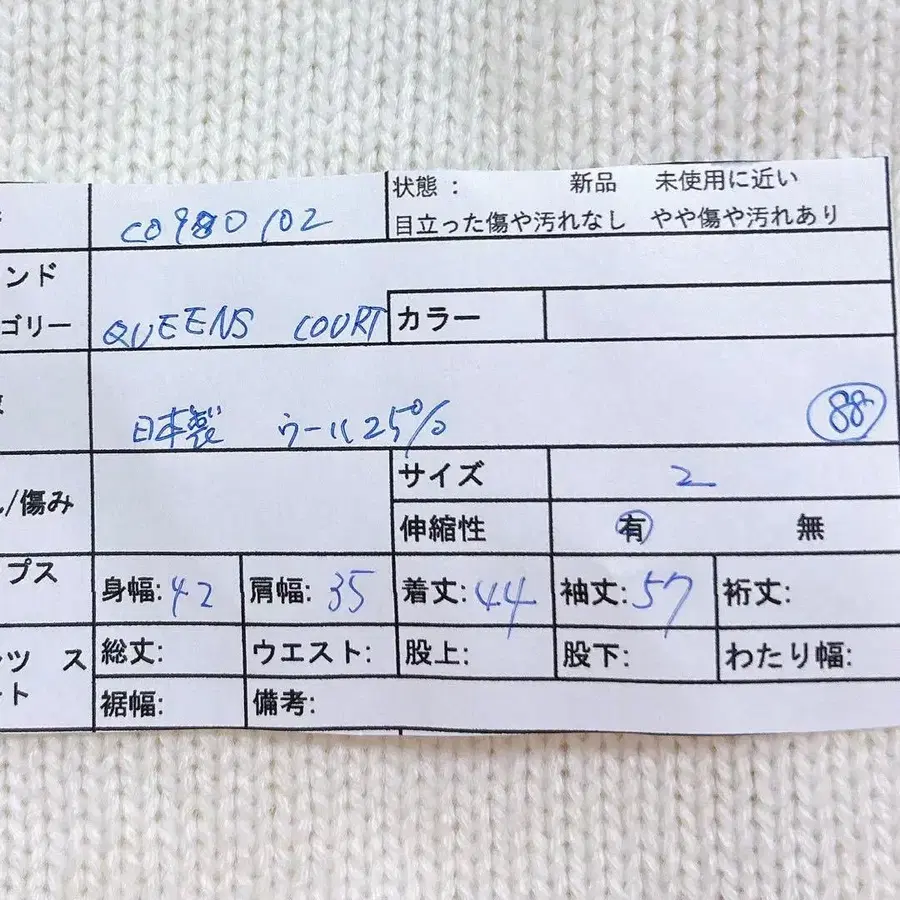 CO980102
状態： 新品 未使用に近い
目立った傷や汚れなし やや傷や汚れあり
ンド
ゴリー QUEENS COURT カラー
日本製 ウール25% 88
/傷み サイズ 2
伸縮性 有 無
プス 身幅:42 肩幅:35 着丈:44 袖丈:57 裄丈:
ツ ス 総丈: ウエスト: 股上: 股下: わたり幅:
ト 裾幅: 備考: